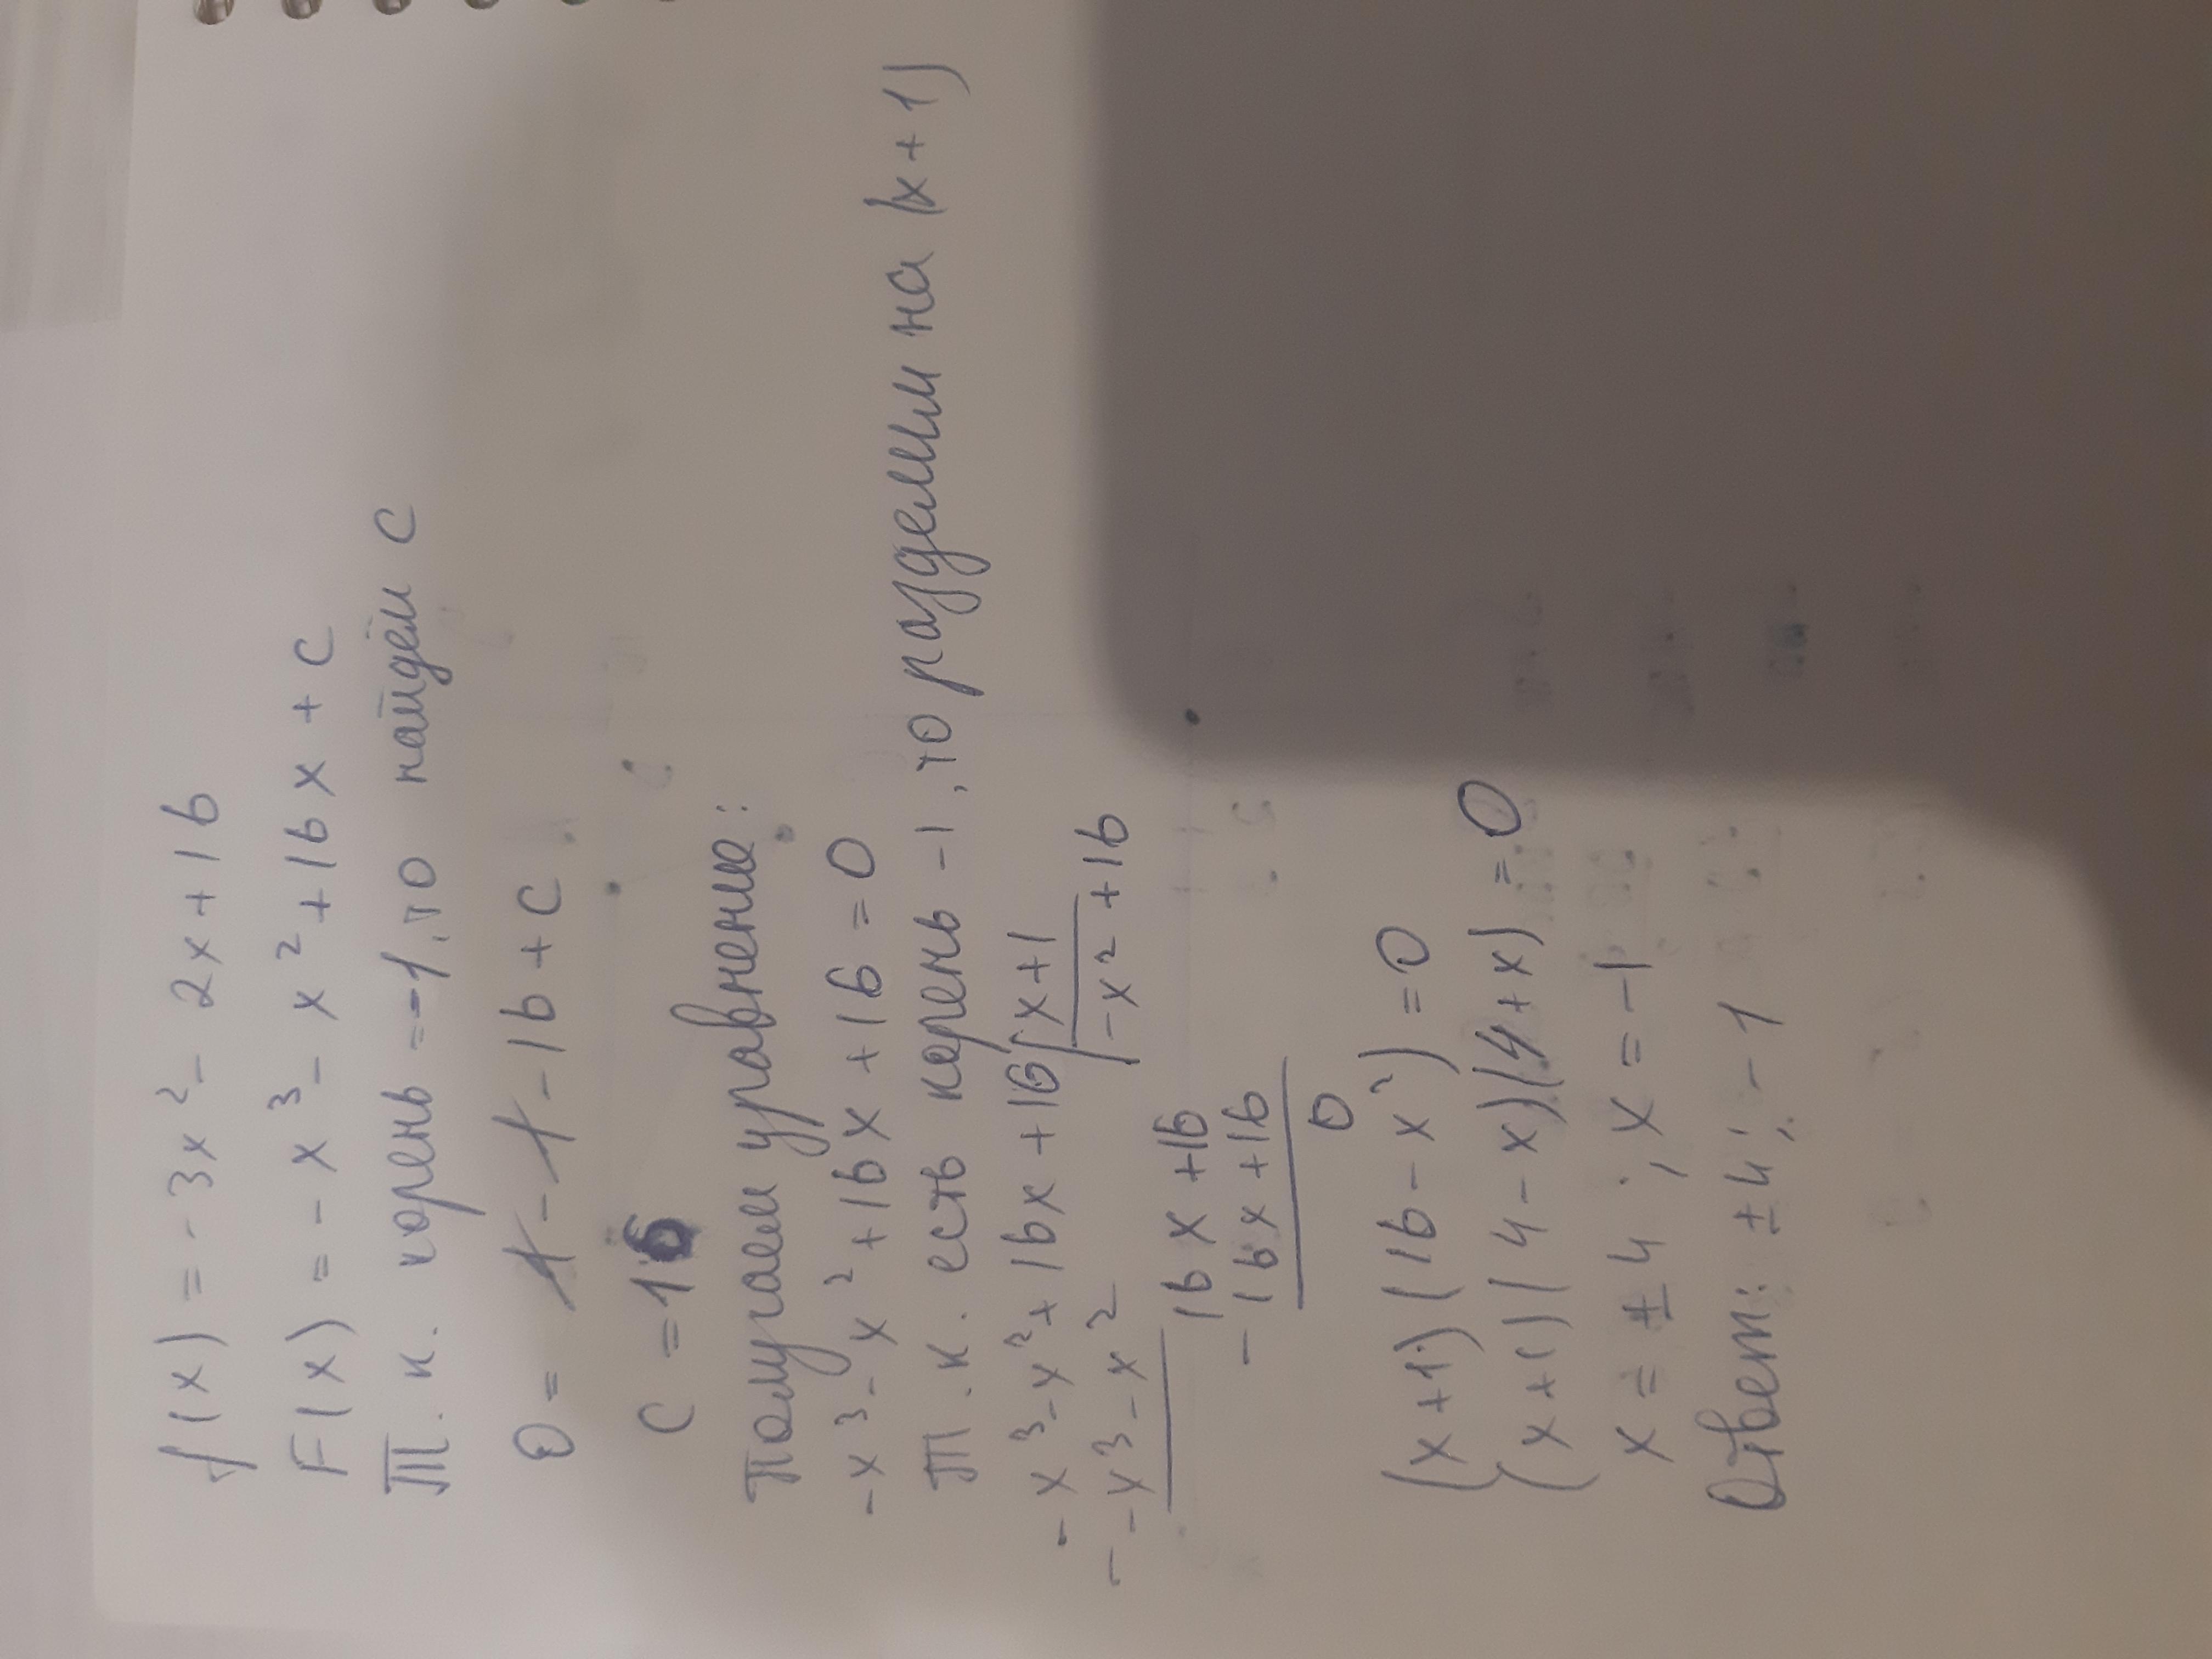 f(x) = - 3x² - 2x + 16
F(x) = - x³ - x² + 16x + C
Т.к. корень = -1, то найдём C
0 = 1 - 1 - 16 + C
C = 16
Получаем уравнение:
-x³ - x² + 16x + 16 = 0
Т.к. есть корень -1, то разделим на (x + 1)
- x³ - x² + 16x + 16 | x + 1
- -x³ - x² | -x² + 16
16x + 16
- 16x + 16
0
(x + 1) (16 - x²) = 0
(x + 1) (4 - x) (4 + x) = 0
x = ± 4 ; x = -1
Ответ: ± 4 ; - 1